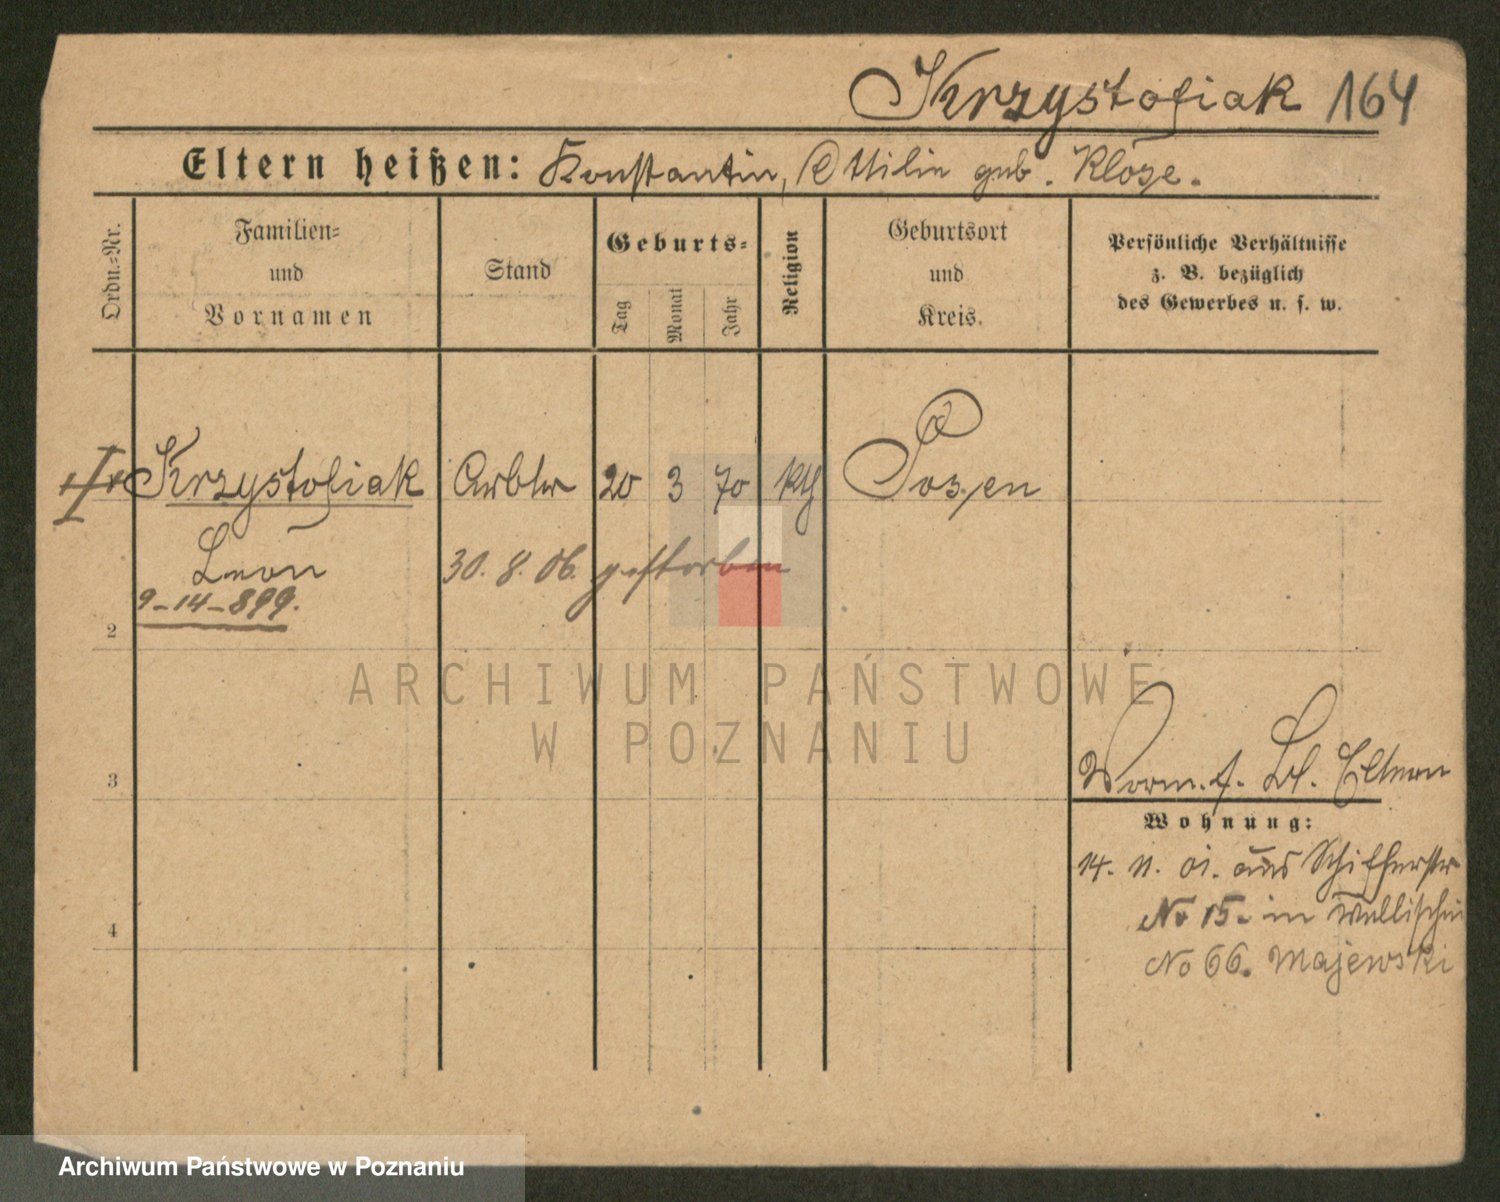 Krzystofiak 164
Eltern heißen: Konstantin, Ottilie geb. Kloze.
Ordn.=Nr.
Familien=
und
Vornamen
Stand
Geburts=
Tag
Monat
Jahr
Religion
Geburtsort
und
Kreis.
Persönliche Verhältnisse
z. B. bezüglich
des Gewerbes u. s. w.
Krzystofiak Arbtr 20 3 70 kth Posen
Leon
30. 8. 06. gestorben
9-14-899.
2
ARCHIWUM PAŃSTWOWE
W POZNANIU
3
Eltern
Wohnung:
14. 11. 01. aus Schifferstr
No 15. in Wallischei
4
No 66. Majewski
Archiwum Państwowe w Poznaniu